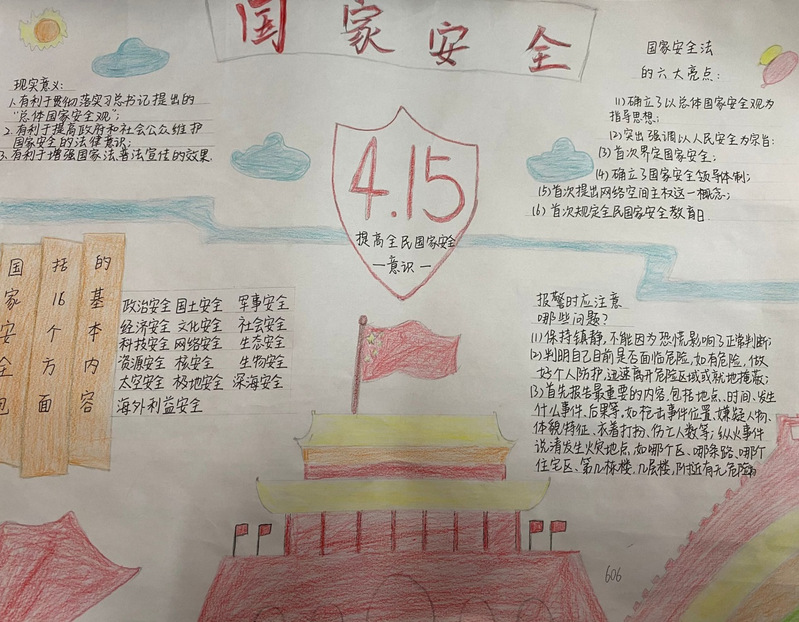 国家安全
现实意义:
1.有利于贯彻落实习总书记提出的
"总体国家安全观";
2.有利于提高政府和社会公众维护
国家安全的法律意识;
3.有利于增强国家法普法宣传的效果.
4.15
提高全民国家安全
—意识—
国家安全法
的六大亮点:
(1)确立了以总体国家安全观为
指导思想;
(2)突出强调以人民安全为宗旨:
(3)首次界定国家安全;
(4)确立了国家安全领导体制;
(5)首次提出网络空间主权这一概念;
(6)首次规定全民国家安全教育日
的基本内容
括16个方面
国家安全包
政治安全 国土安全 军事安全
经济安全 文化安全 社会安全
科技安全 网络安全 生态安全
资源安全 核安全 生物安全
太空安全 极地安全 深海安全
海外利益安全
报警时应注意
哪些问题?
(1)保持镇静,不能因为恐慌影响了正常判断;
(2)判明自己目前是否面临危险,如有危险,做
好个人防护,迅速离开危险区域或就地掩蔽;
(3)首先报告最重要的内容,包括地点、时间、发生
什么事件、后果等,如枪击事件位置、嫌疑人物、
体貌特征、衣着打扮、伤亡人数等;纵火事件
说清发生火灾地点,如哪个区、哪条路、哪个
住宅区、第几栋楼,几层楼,附近有无危险
606